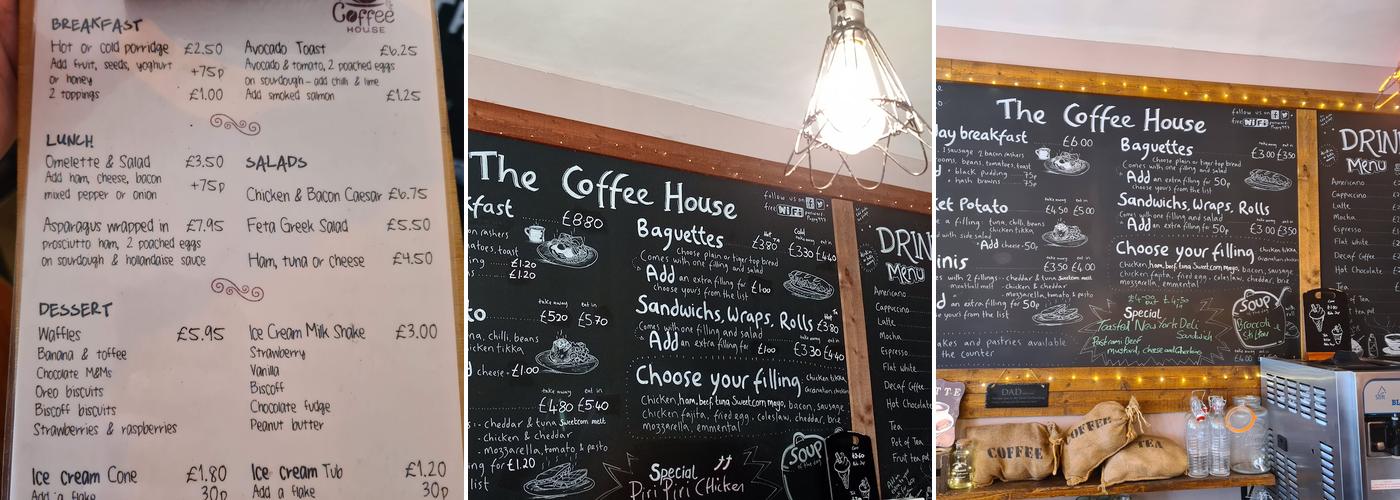 Coffee
HOUSE
BREAKFAST
Hot or cold porridge £2.50
Add fruit, seeds, yoghurt
or honey +75p
2 toppings £1.00
Avocado Toast £6.25
Avocado & tomato, 2 poached eggs
on sourdough - add chilli & lime
Add smoked salmon £1.25
LUNCH
Omelette & Salad £3.50
Add ham, cheese, bacon
mixed pepper or onion +75p
Asparagus wrapped in £7.95
prosciutto ham, 2 poached eggs
on sourdough & hollandaise sauce
SALADS
Chicken & Bacon Caesar £6.75
Feta Greek Salad £5.50
Ham, tuna or cheese £4.50
DESSERT
Waffles £5.95
Banana & toffee
Chocolate M&Ms
Oreo biscuits
Biscoff biscuits
Strawberries & raspberries
Ice Cream Milk Shake £3.00
Strawberry
Vanilla
Biscoff
Chocolate fudge
Peanut butter
Ice cream Cone £1.80
Add a flake 30p
Ice cream Tub £1.20
Add a flake 30p
The Coffee House
follow us on
free WiFi
kfast £8.80
on rashers
matoes, toast
£1.20
£1.20
take away eat in
to £5.20 £5.70
na, chilli, beans
chicken tikka
cheese £1.00
take away eat in
£4.80 £5.40
cheddar & tuna Sweetcorn melt
- chicken & cheddar
- mozzarella, tomato & pesto
ng for £1.20
list
Baguettes Hot £3.80 Cold £3.30 £4.40
Choose plain or tiger top bread
Comes with one filling and salad
Add an extra filling for £1.00
choose yours from the list
Sandwichs, Wraps, Rolls £3.80
Comes with one filling and salad
Add an extra filling for £1.00 £3.30 £4.40
Choose your filling chicken tikka,
Coronation chicken,
chicken, ham, beef, tuna Sweetcorn mayo, bacon, sausage,
chicken fajita, fried egg, coleslaw, cheddar, brie,
mozzarella, emmental
Special
Piri Piri Chicken
SOUP
of the day
DRIN
Menu
Americano
Cappuccino
Latte
Mocha
Espresso
Flat white
Decaf Coffee
Hot Chocolate
Tea
Pot of Tea
Fruit tea
The Coffee House
follow us on
free WiFi
day breakfast £6.00
1 sausage 2 bacon rashers
rooms, beans, tomatoes, toast
• black pudding 75p
• hash browns 75p
take away eat in
ket Potato £4.50 £5.00
a filling: tuna, chilli, beans
chicken tikka
with side salad
Add cheese 50p
take away eat in
inis £3.50 £4.00
with 2 fillings - cheddar & tuna Sweetcorn melt
meatball melt - chicken & cheddar
- mozzarella, tomato & pesto
d an extra filling for 50p
yours from the list
akes and pastries available
the counter
Baguettes
take away eat in
£3.00 £3.50
Choose plain or tiger top bread
Comes with one filling and salad
Add an extra filling for 50p,
choose yours from the list
Sandwichs, Wraps, Rolls
take away eat in
Comes with one filling and salad
Add an extra filling for 50p £3.00 £3.50
Choose your filling chicken tikka
Coronation chicken,
chicken, ham, beef, tuna Sweetcorn mayo, bacon, sausage,
chicken fajita, fried egg, coleslaw, cheddar, brie,
mozzarella, emmental
Special
Toasted New York Deli
Sandwich
Pastrami Beef
mustard, cheese and Gherkins
SOUP
of the day
Broccoli &
Stilton
£4.00
DRIN
Menu
Americano
Cappuccino
Latte
Mocha
Espresso
Flat white
Decaf Coffee
Hot Chocolate
Tea
DAD
COFFEE
COFFEE
TEA